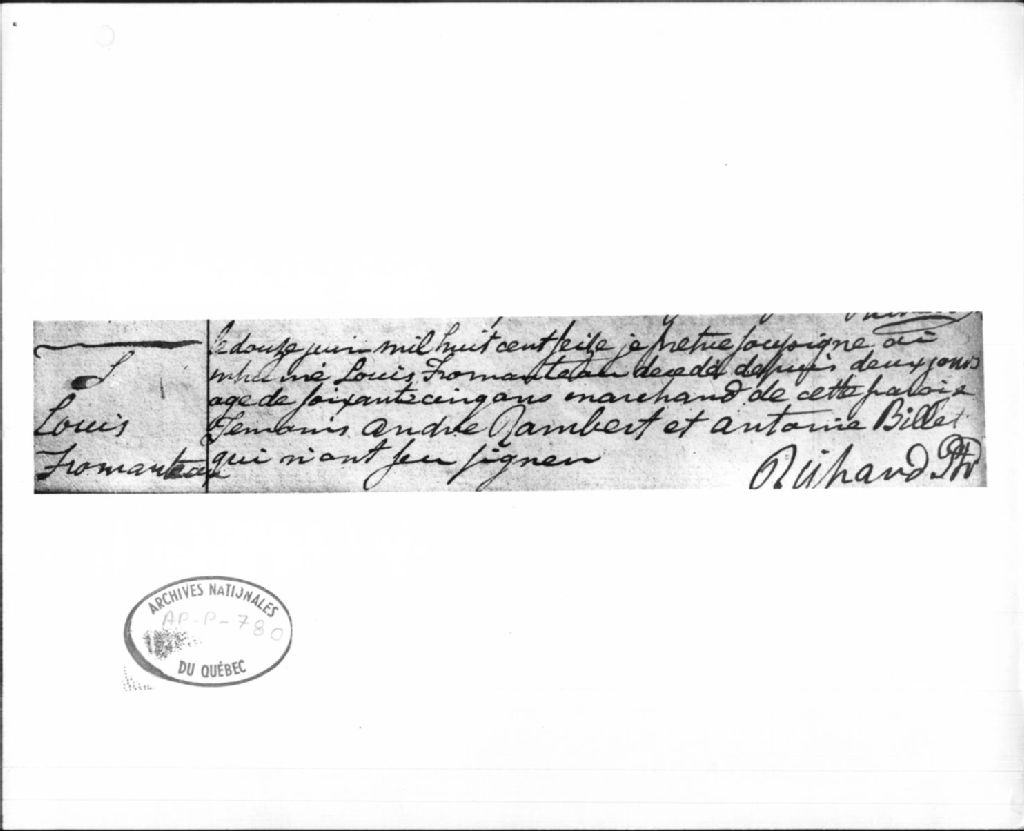 S
Louis
Fromanteau
le douze juin mil huit cent seize je pretre soussigne ai
inhumé Louis Fromanteau decedé depuis deux jours
age de soixante cinq ans marchand de cette paroisse
Temoins andre Rambert et antoine Billet
qui n'ont seu signer
Richard Ptr
ARCHIVES NATIONALES
AP-P-780
DU QUÉBEC